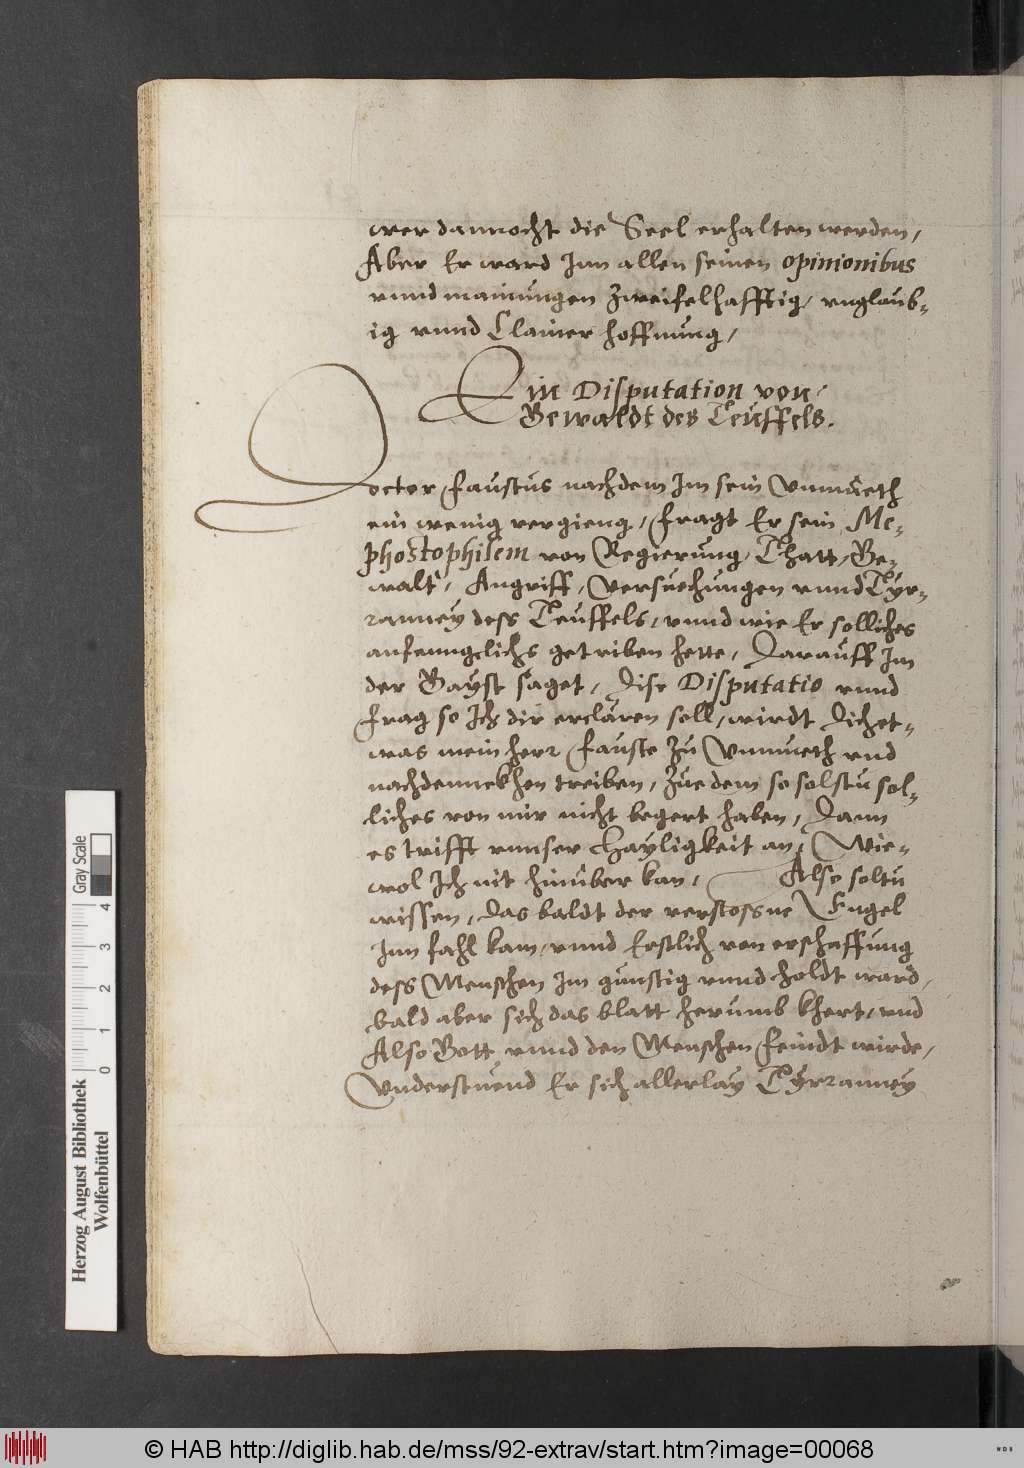 wer dannocht die Seel erhalten werden,
Aber Er ward Inn allen seinen opinionibus
vnnd mainungen Zweifelhafftig, vnglaub-
ig vnnd Clainer hoffnung,
Ein Disputation von
Gewaldt des Teuffels.
Doctor Faustus nachdem Im sein Vnmueth
ein wenig vergieng, fragt Er sein Me-
phostophilem von Regierung, Thatt, Ge-
walt, Angriff, Versuchungen vnnd Tyr-
ranney dess Teuffels, vnnd wie Er solliches
anfenngclichs getriben hette, Darauff Im
der Gayst saget, Dise Disputatio vnnd
frag so Ich dir erclären soll, wirdt Dich et-
was mein herr Fauste Zu Vnmueth vnd
nachdennckhen treiben, Zue dem so solstu sol-
liches von mir nicht begert haben, Dann
es trifft vnnser Hayligkeit an, Wie-
wol Ich nit hinüber kan, Also soltu
wissen, Das baldt der verstossne Engel
Inn fahl kam, vnnd Erstlich von erschaffung
dess Menschen Im günstig vnnd holdt ward,
bald aber sich das blatt herumb khert, vnd
Also Gott vnnd den Menschen feindt wirde,
Vnderstuend Er sich allerlay Tyrranney
Herzog August Bibliothek
Wolfenbüttel
0 1 2 3 4
Gray Scale
© HAB http://diglib.hab.de/mss/92-extrav/start.htm?image=00068
WDB